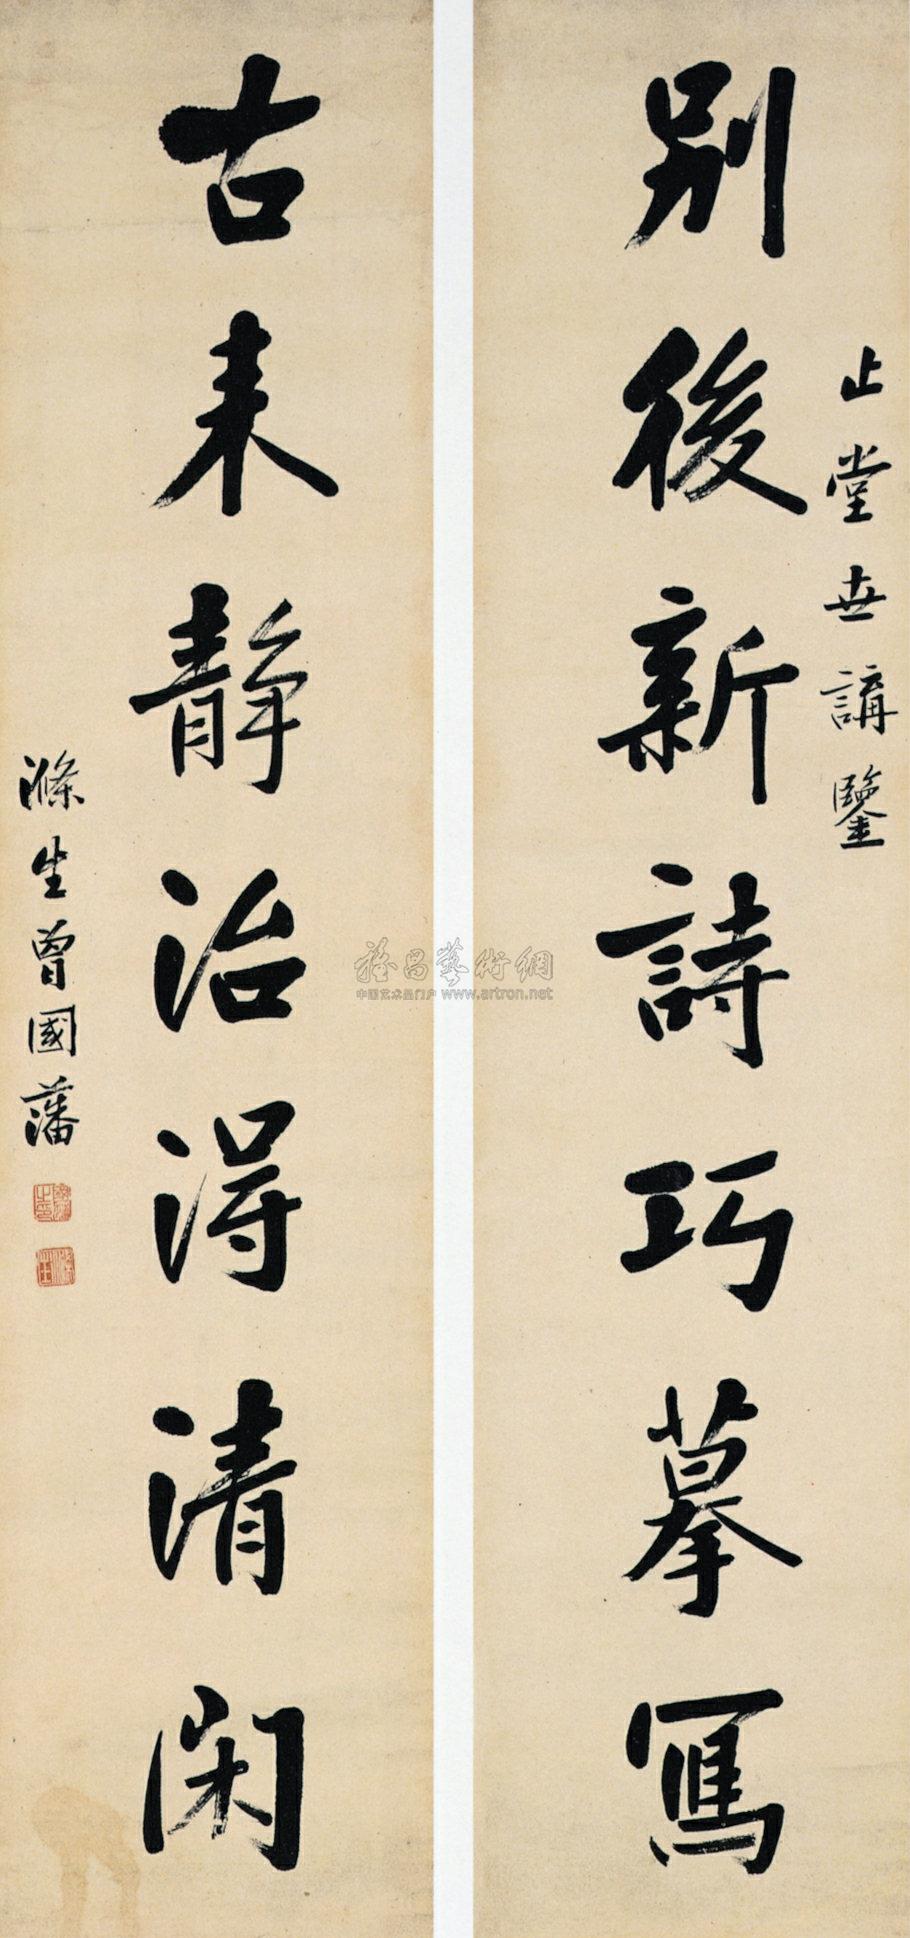 止堂世講鑒
別後新詩巧摹寫
古来靜治得清閑
滌生曾國藩
雅昌藝術網
中国艺术品门户 www.artron.net